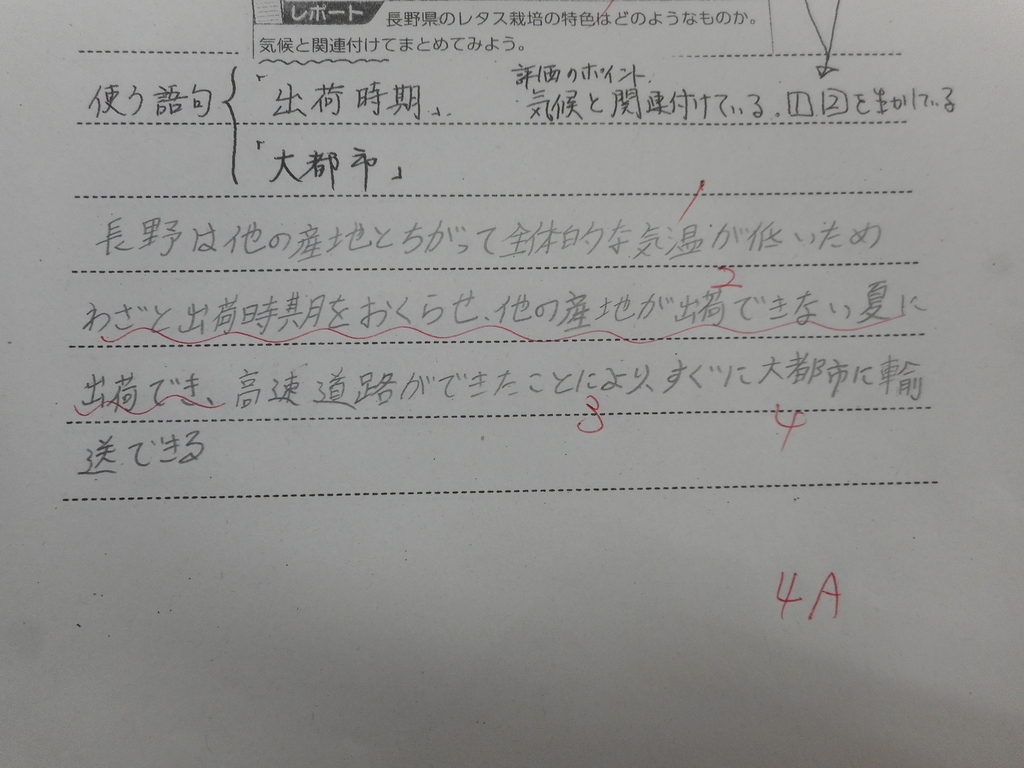 レポート 長野県のレタス栽培の特色はどのようなものか。
気候と関連付けてまとめてみよう。
評価のポイント
使う語句 「出荷時期」 気候と関連付けている。①②を生かしている
「大都市」
1
長野は他の産地とちがって全体的な気温が低いため
2
わざと出荷時期をおくらせ、他の産地が出荷できない夏に
出荷でき、高速道路ができたことにより、すぐに大都市に輸
3 4
送できる
4A